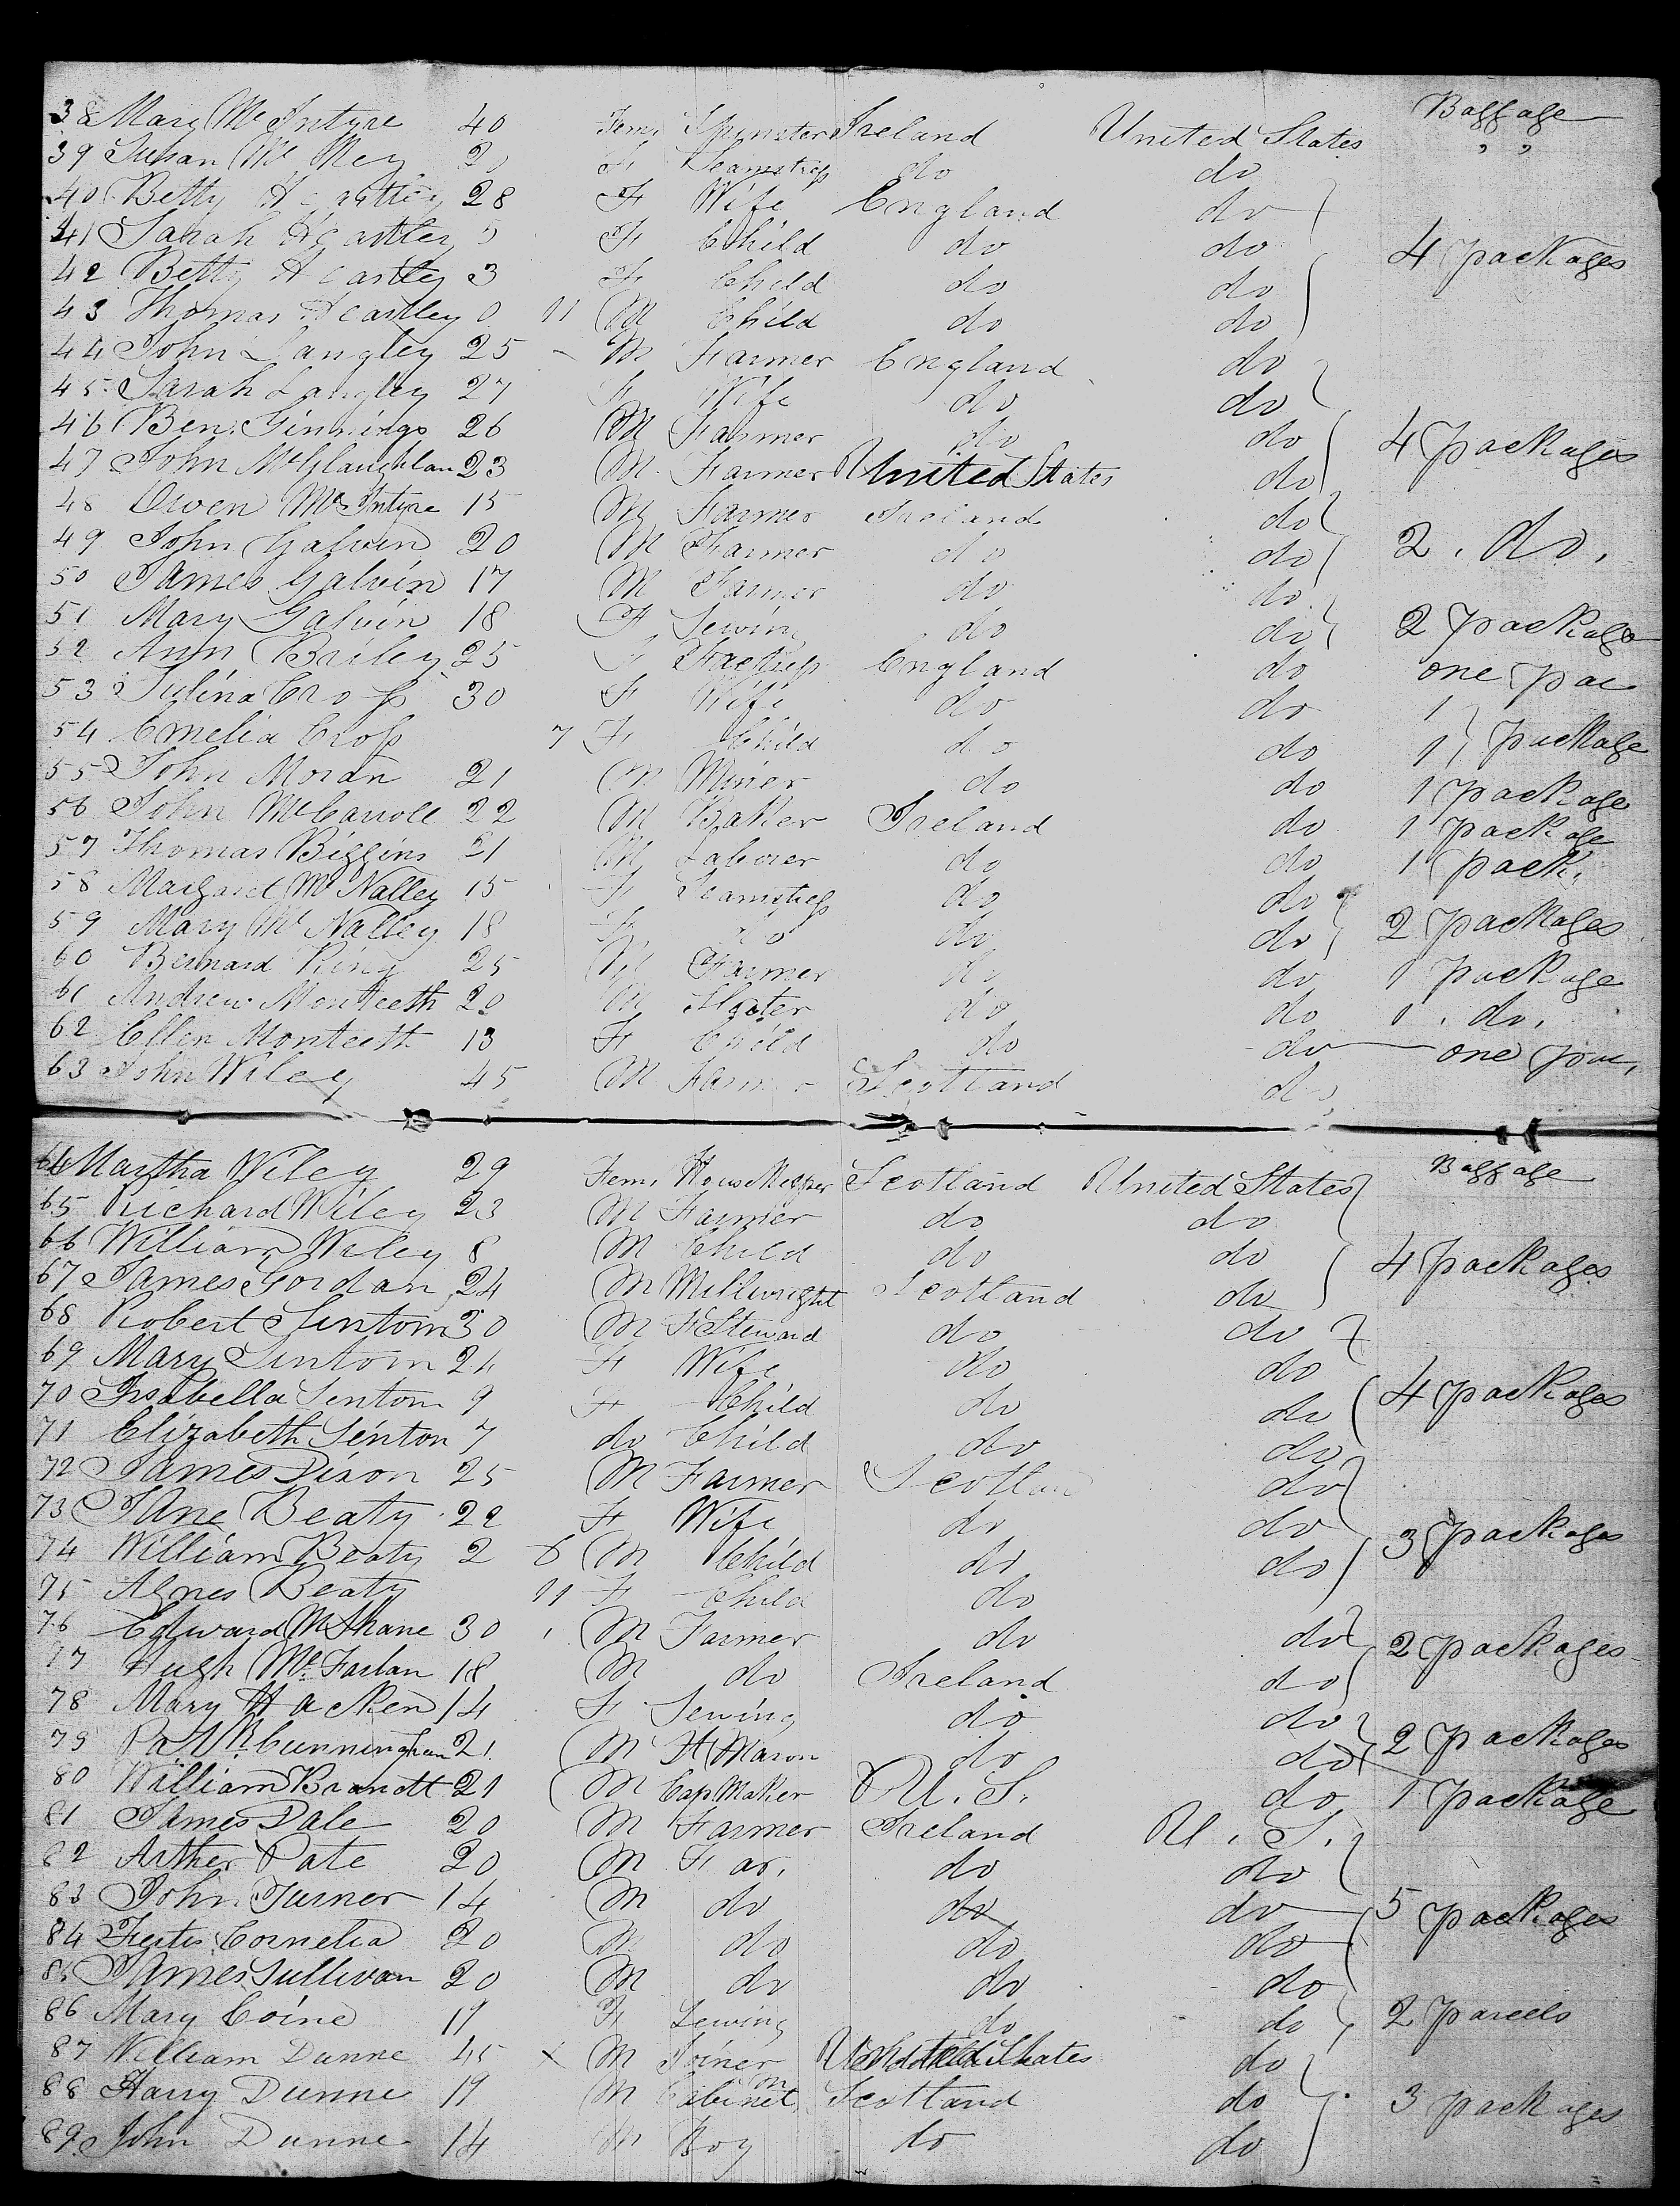 Baggage
38 Mary McIntyre 40 Fem. Spinster Ireland United States " "
39 Susan Mc F Seamstress do do
40 Betty Heartley 28 F Wife England do
41 Sarah Heartley 5 F Child do do 4 packages
42 Betty Heartley 3 F Child do do
43 Thomas Heartley 0 11 M Child do do
44 John Langley 25 - M Farmer England do
45 Sarah Langley 27 F Wife do do
46 Ben. Ginnings 26 M Farmer do do 4 packages
47 John McGlaughlan 23 M Farmer United States do
48 Owen McIntyre 15 M Farmer Ireland do
49 John Galvin 20 M Farmer do do 2. do.
50 James Galvin 17 M Farmer do do
51 Mary Galvin 18 F Sewing do do 2 package
52 Ann Briley 25 F England do one pac
53 Julina Cross 30 F Wife do do 1
54 Emelia Cross 7 F Child do do 1 package
55 John Moran 21 M Miner do do 1 package
56 John McCarroll 22 M Baker Ireland do 1 package
57 Thomas Biggins 21 M Laborer do do 1 pack.
58 Margaret McNalley 15 F Seamstress do do
59 Mary McNalley 18 F do do do 2 packages
60 Bernard King 25 M Farmer do do 1 package
61 Andrew Monteeth 20 M Slater do do 1. do.
62 Ellen Monteeth 13 F Child do do one pac,
63 John Wiley 45 M Farmer Scotland do
Baggage
64 Martha Wiley 29 Fem. HouseKeeper Scotland United States
65 Richard Wiley 23 M Farmer do do
66 William Wiley 8 M Child do do 4 packages
67 James Gordan 24 M Millwright Scotland do
68 Robert Sintom 30 M F Steward do do
69 Mary Sintom 24 F Wife do do
70 Isabella Sentom 9 F Child do do 4 packages
71 Elizabeth Senton 7 do Child do do
72 James Dixon 25 M Farmer Scotlan do
73 Jane Beaty 22 F Wife do do 3 packages
74 William Beaty 2 6 M Child do do
75 Agnes Beaty 11 F Child do
76 Edward McShane 30 M Farmer do do 2 packages
77 Hugh McFarlan 18 M do Ireland do
78 Mary Hacken 14 F Sewing do do
79 Patk. Cunningham 21 M Mason do do 2 packages
80 William Brandt 21 M Cap Maker U.S. do 1 package
81 James Dale 20 M Farmer Ireland U.S.
82 Arther Pate 20 M Far. do do
83 John Turner 14 M do do do 5 packages
84 Cornelia 20 M do do do
85 James Sullivan 20 M do do do
86 Mary Coine 17 F Sewing do do 2 parcels
87 William Dunne 45 x M Joiner United States do
88 Harry Dunne 17 M Cabinet m Scotland do 3 packages
89 John Dunne 14 M Boy do do